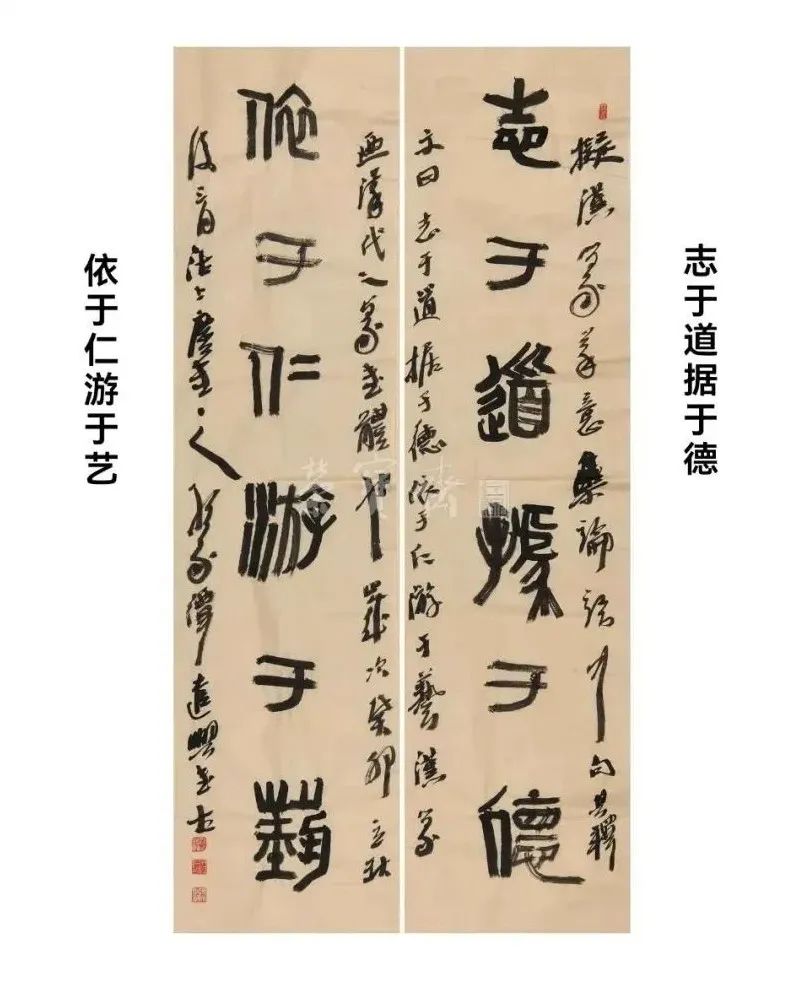 志于道据于德
擬漢篆筆意集論語中句其釋
志于道據于德
文曰志于道據于德依于仁游于藝漢篆
漢代之篆書體歲次癸卯立秋
依于仁游于藝
後三日
依于仁游于艺
榮寶齋